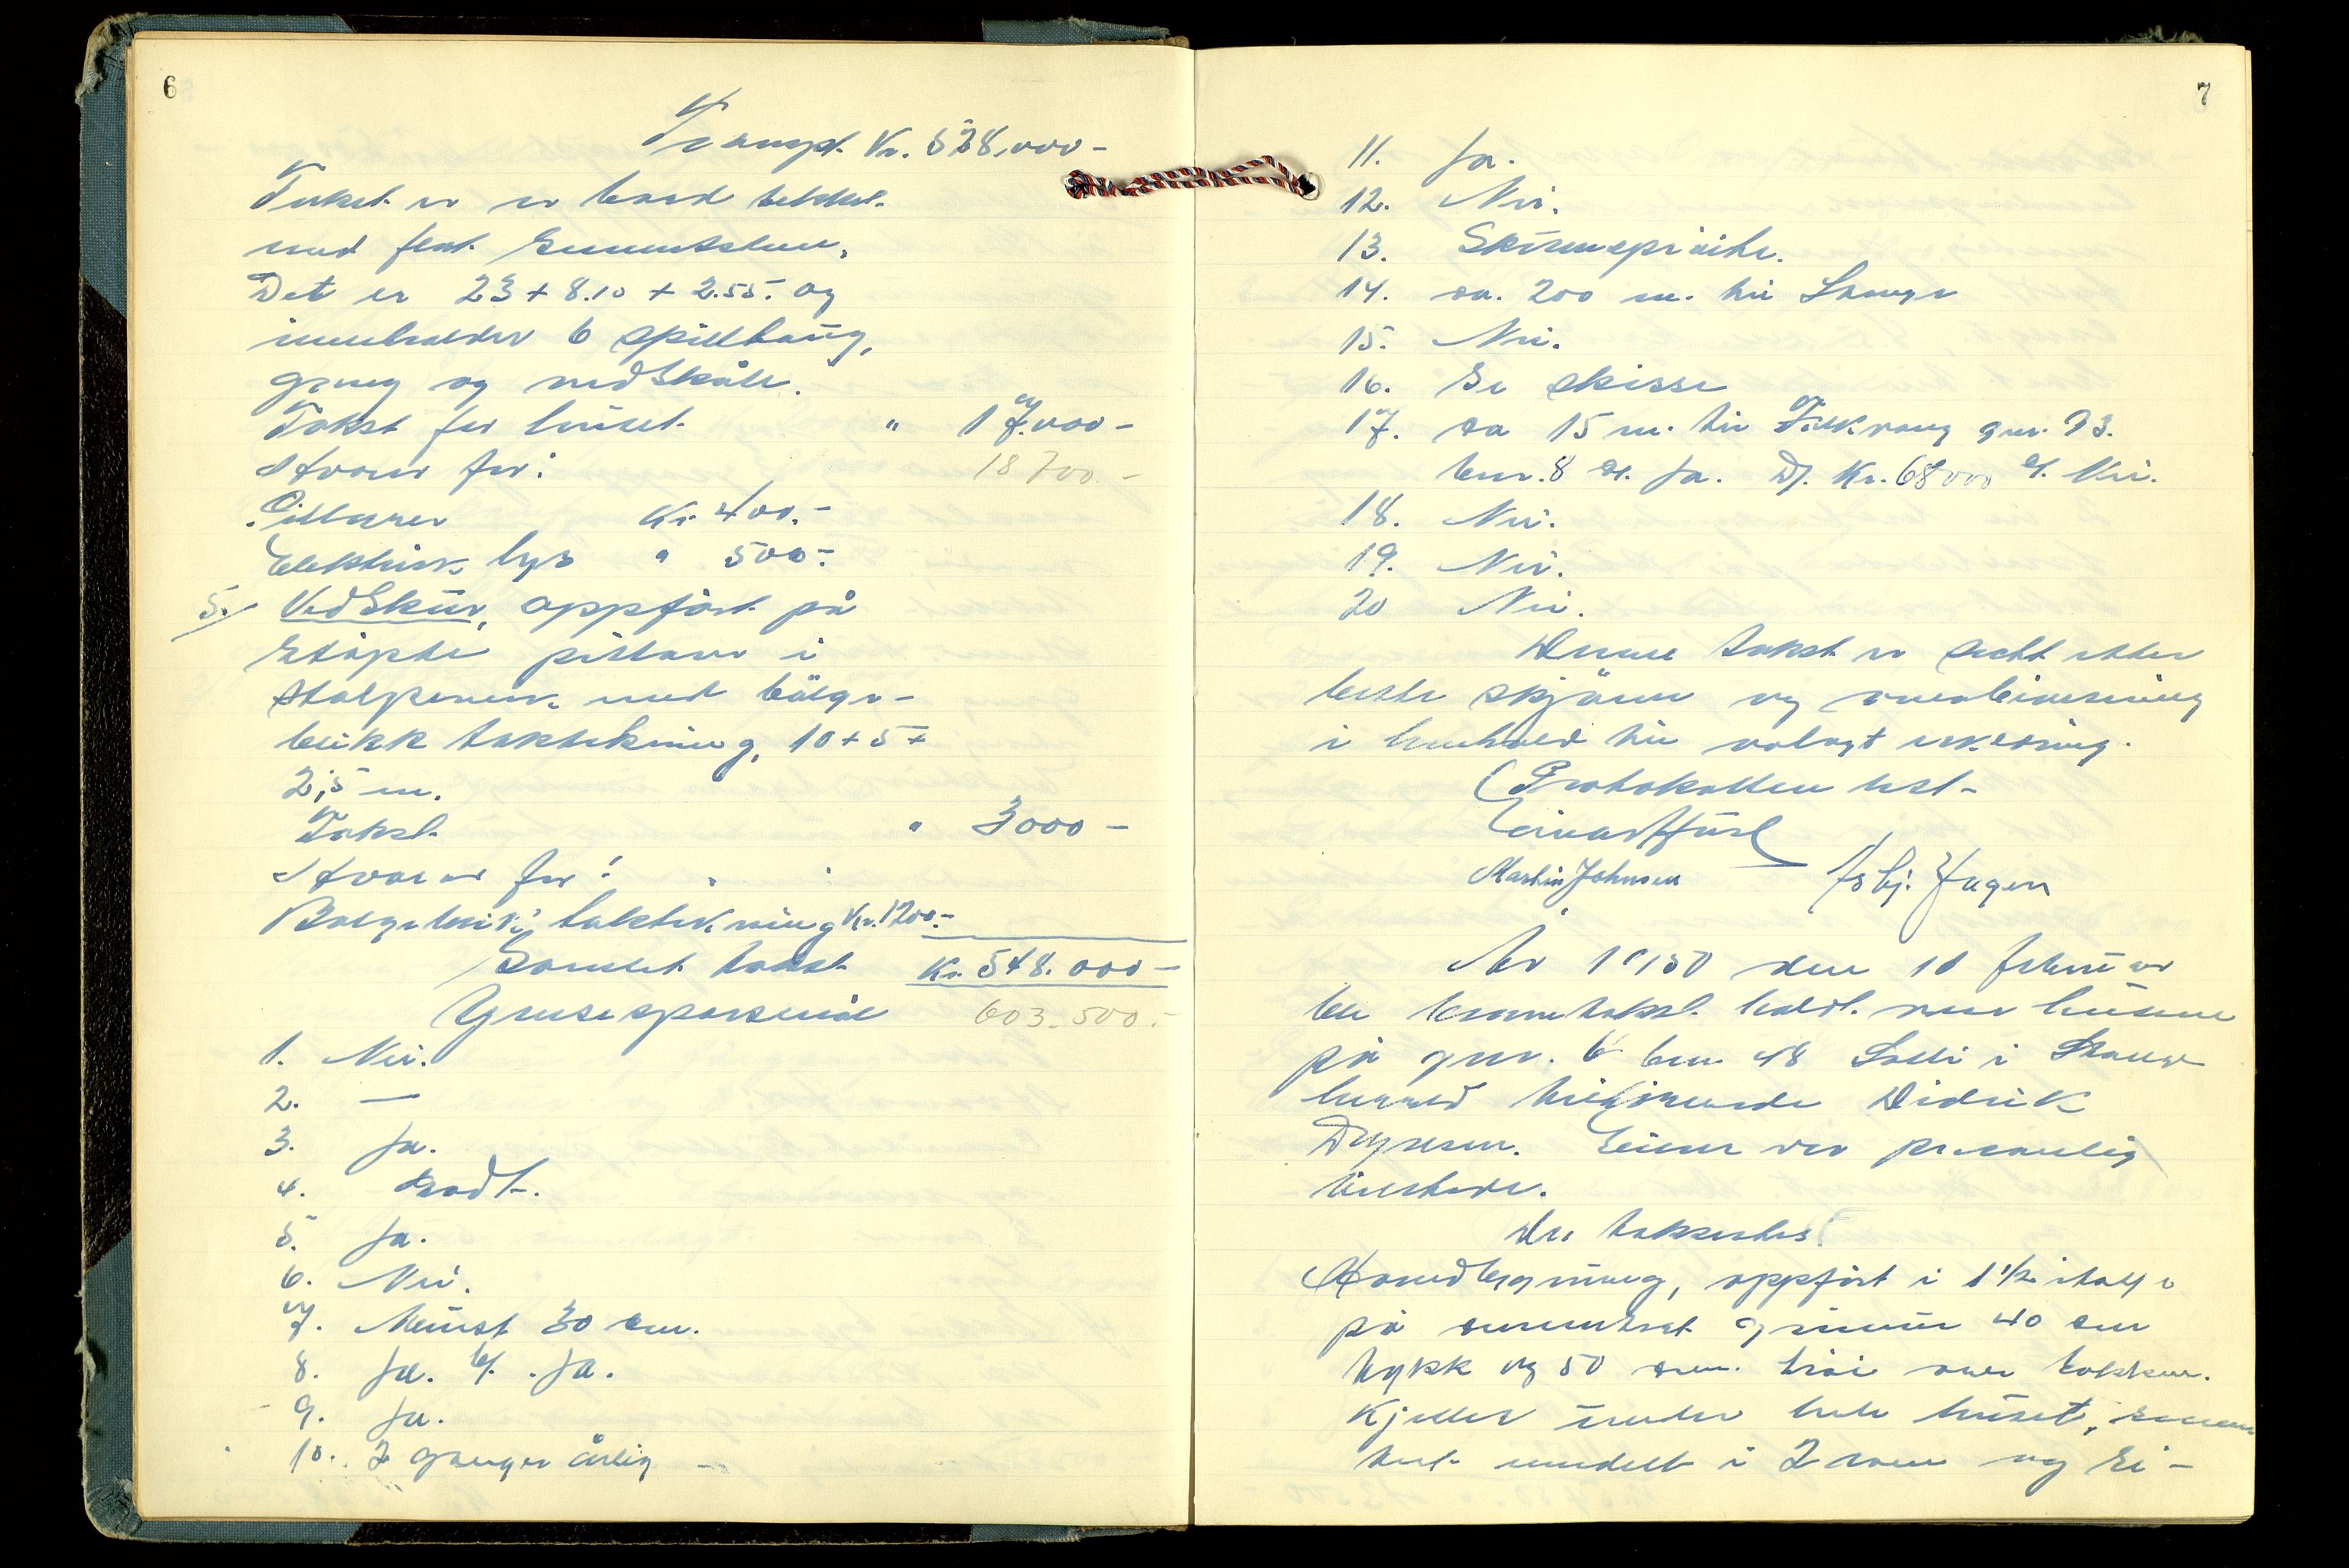 6
Transpt. Kr. 528.000-
Taket er er bord tekket
med flat sementsten.
Det er 23 + 8.10 + 2.55. og
inneholder 6 spilltaug,
gang og vedskåle.
Takst for huset " 17.000-
Hvorav for: 18 700.-
Pillarer Kr. 400.-
Elektrisk lys " 500.-
5. Vedskur, oppført på
støpte pillarer i
stolperverk med bølge-
blikk taktekning, 10 + 5 +
2,5 m.
Takst " 3000-
Hvorav for:
Bølgeblikk taktekning Kr. 1200.-
Samlet takst Kr. 548.000-
Grusespørsmål 603.500.-
1. Nei.
2. —
3. Ja.
4. Godt.
5. Ja.
6. Nei.
7. Minst 30 cm.
8. Ja. b/. Ja.
9. Ja.
10. 2 ganger årlig
7
11. Ja.
12. Nei.
13. Skumsprøite.
14. ca. 200 m. til Stange
15. Nei.
16. Se skisse
17. ca 15 m. til Folkvang gnr. 93.
bnr. 8 Ja. D/. Kr. 68000 e/. Nei.
18. Nei.
19. Nei.
20 Nei.
Denne takst er satt etter
beste skjønn og overbevisning
i henhold til avlagt erklæring.
Protokollen lest-
Einar Fjusl
Martin Johnsen Asbj. Hagen
År 1950 den 10 februar
ble branntakst holdt over husene
på gnr. 6 bnr 48 Solli i Stange
herred tilhørende Didrik
Dyresen. Eieren var personlig
tilstede.
Der takseertes:
Hovedbygning, oppført i 1 1/2 etasje
på sementert grunnmur 40 cm
tykk og 50 cm. høi over bakken.
Kjeller under hele huset, sementert
inndelt i 2 rom og ei-